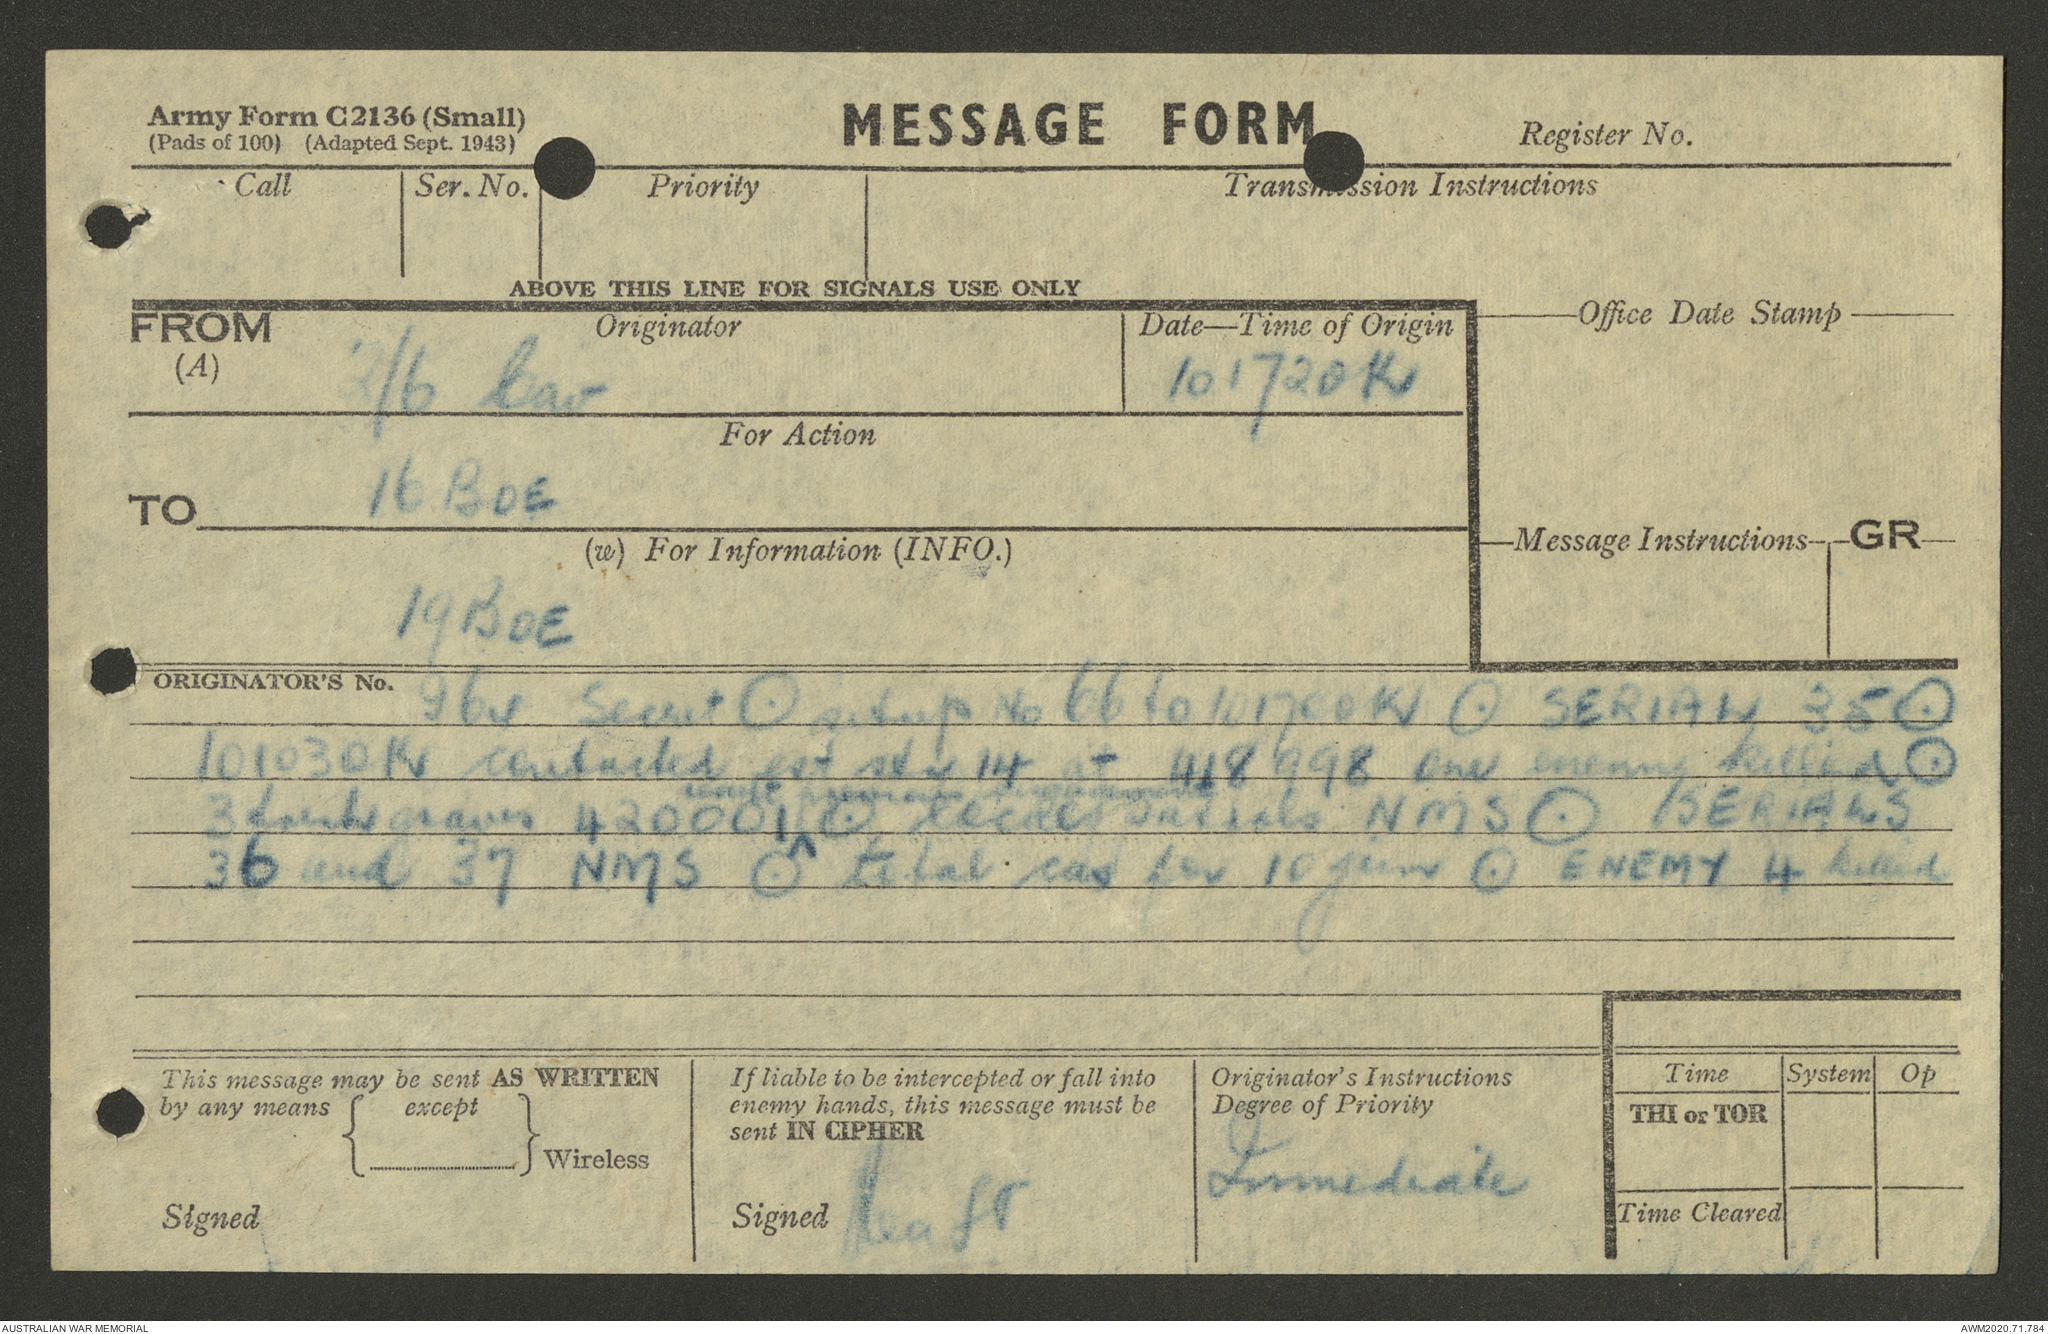 Army Form C2136 (Small)
(Pads of 100) (Adapted Sept. 1943)
MESSAGE FORM
Register No.
Call
Ser. No.
Priority
Transmission Instructions
ABOVE THIS LINE FOR SIGNALS USE ONLY
FROM
(A)
Originator
2/6 Cav
Date—Time of Origin
101720K
Office Date Stamp
For Action
TO
16 BDE
(w) For Information (INFO.)
19 BDE
Message Instructions
GR
ORIGINATOR'S No.
Secret ⊙ sitrep No 66 to 101700K ⊙ SERIAL 35 ⊙
101030K contacted est str 14 at 418998 one enemy killed ⊙
3 fresh graves 420001 ⊙ NMS ⊙ SERIALS
36 and 37 NMS ⊙ total cas for 10 June ⊙ ENEMY 4 killed
This message may be sent AS WRITTEN
by any means { except
} Wireless
Signed
If liable to be intercepted or fall into
enemy hands, this message must be
sent IN CIPHER
Signed
Originator's Instructions
Degree of Priority
Immediate
Time
System
Op
THI or TOR
Time Cleared
AUSTRALIAN WAR MEMORIAL
AWM2020.71.784